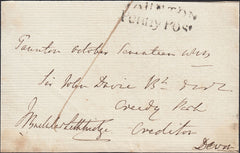 TAUNTON
Penny Post
Taunton October Seventeen
Sir John Davie Bt
Creedy Park
Crediton
Devon